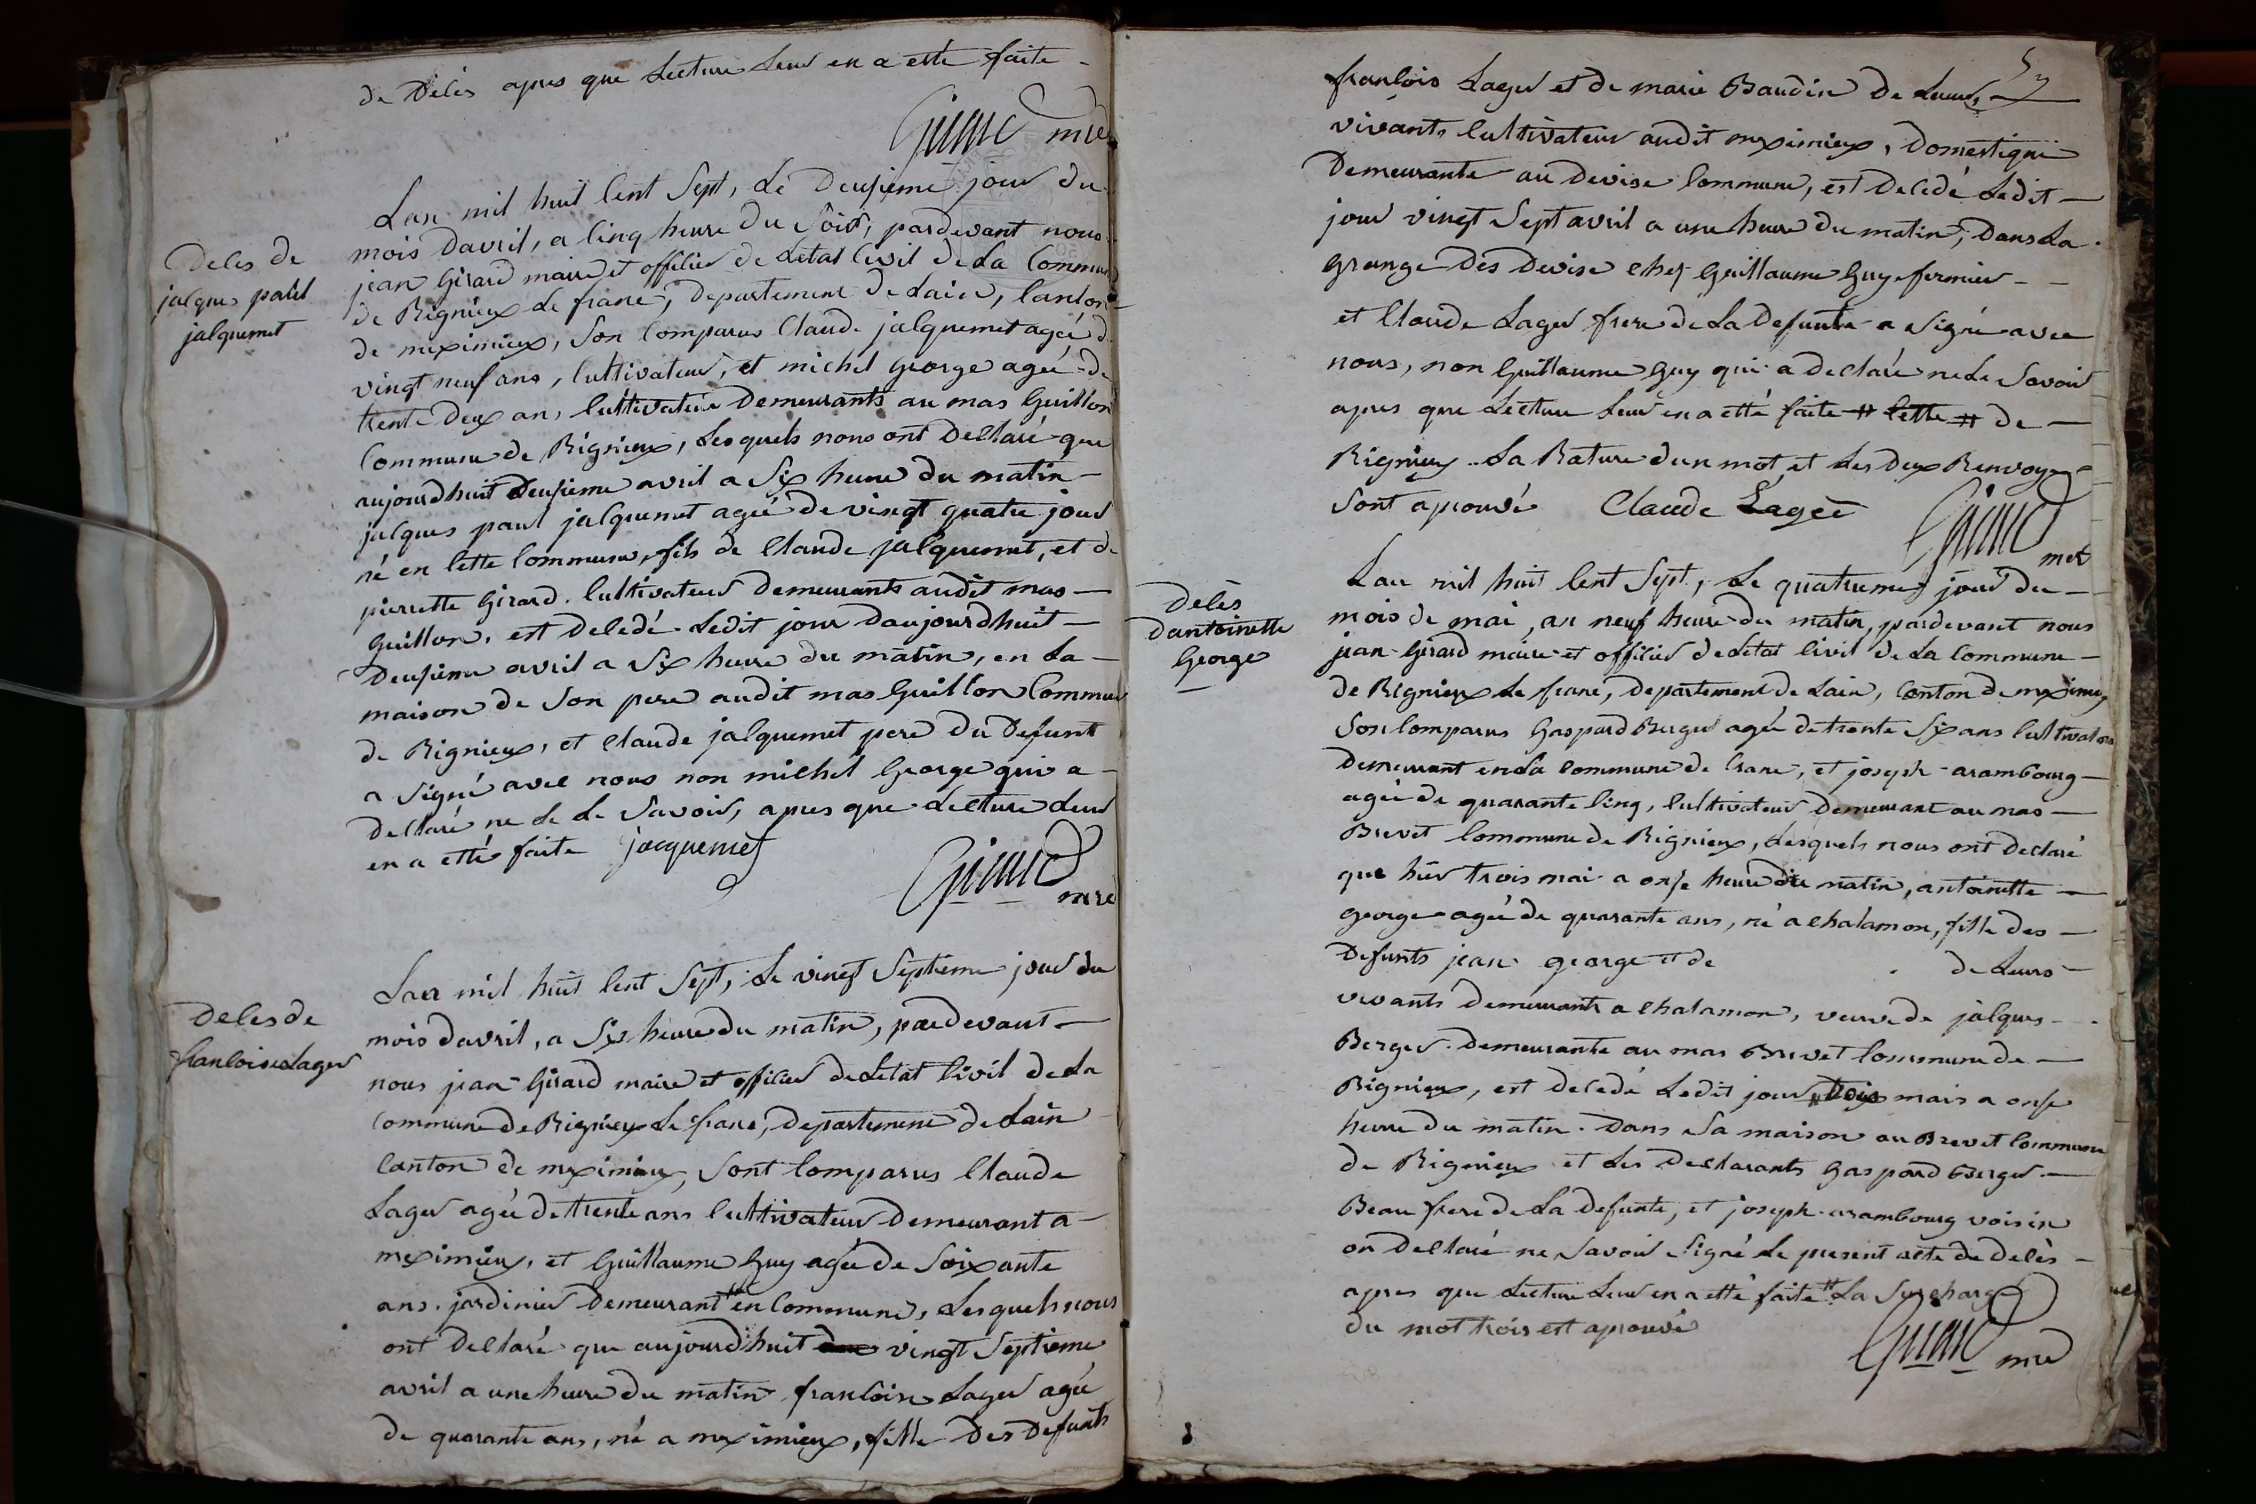 de Décès apres que Lecture Leur en a etté faite
Girard mre
Lan mil huit cent Sept, Le Deuxieme jour du
mois Davril, a cinq heure Du Soir, pardevant nous
jean Girard maire et officier de Létat Civil de La Commune
de Rignieux Le franc, Departement de Lain, canton
de meximieux, Son Comparus Claude jacquemet ageé de
vingt neuf ans, Cultivateur, et michel George ageé de
trente Deux an, Cultivateur Demeurants au mas Guillon
Commune de Rignieux, Lesquels nous ont Declaré que
aujourdhuit Deuxieme avril a Six heure du matin
jacques paul jacquemet ageé de vingt quatre jour
né en Cette Commune, fils de Claude jacquemet, et de
pierrette Girard. Cultivateur Demeurants audit mas
Guillon, est Decedé Ledit jour Daujourdhuit
Deuxieme avril a Six heure du matin, en La
maison de Son pere audit mas Guillon Commune
de Rignieux, et Claude jacquemet pere Du Defunt
a Signé avec nous non michel George qui a
declaré ne Le Savoir, apres que Lecture Leur
en a etté faite jacquemet
Girard mre
Deces de
jacques paul
jacquemet
Lan mil huit Cent Sept, Le vingt Septieme jour du
mois davril, a Six heure du matin, pardevant
nous jean Girard maire et officier de Létat Civil de La
Commune de Rignieux Le franc, Departement de Lain
Canton de meximieux, Sont Comparus Claude
Lager ageé de trente ans Cultivateur Demeurant a
meximieux, et Guillaume Guy ageé de Soixante
ans. jardinier Demeurant # en Commune, Lesquels nous
ont Declaré que aujourdhuit vingt Septieme
avril a une heure du matin francoise Lager ageé
de quarante ans, né a meximieux, fille Des Defunts
Deces de
francoise Lager
francois Lager et de marie Baudin De Leurs
vivants Cultivateur audit meximieux, Domestique
Demeurante au Devise Commune, est Decedé Ledit
jour vingt Sept avril a une heure du matin, Dans La
Grange Des Devise chez Guillaume Guy fermier
et Claude Lager frere de La Defunte a Signé avec
nous, non Guillaume Guy qui a Declaré ne Le Savoir
apres que Lecture Leur en a etté faite # Cette # de
Rignieux. La Rature dun mot et Les Deux Renvoye
Sont aprouvé Claude Lagée
Girard mre
Lan mil huit Cent Sept, Le quatrieme jour du
mois de mai, au neuf heure du matin, pardevant nous
jean Girard maire et officier de Létat Civil de La Commune
de Rignieux Le franc, Departement de Lain, Canton de meximieux
Son Comparus Gaspard Berger ageé de trente Six ans Cultivateur
Demeurant en La Commune de Crans, et joseph arambourg
ageé de quarante Cinq, Cultivateur Demeurant au mas
Brevet Commune de Rignieux, Lesquels nous ont Declaré
que hier trois mai a onze heure du matin, antoinette
George ageé de quarante ans, né a Chalamon, fille des
Defunts jean George et de de Leurs
vivants Demeurants a Chalamon, veuve de jacques
Berger. Demeurante au mas Brevet Commune de
Rignieux, est Decedé Ledit jour # trois mais a onze
heure du matin. Dans Sa maison au Brevet Commune
de Rignieux et Les Declarants Gaspard Berger
Beau frere de La Defunte, et joseph arambourg voisin
on Declaré ne Savoir Signé Le present acte de Décès
apres que Lecture Leur en a etté faite # La Surcharge
du mot trois est aprouvé
Girard mre
Décès
Dantoinette
George